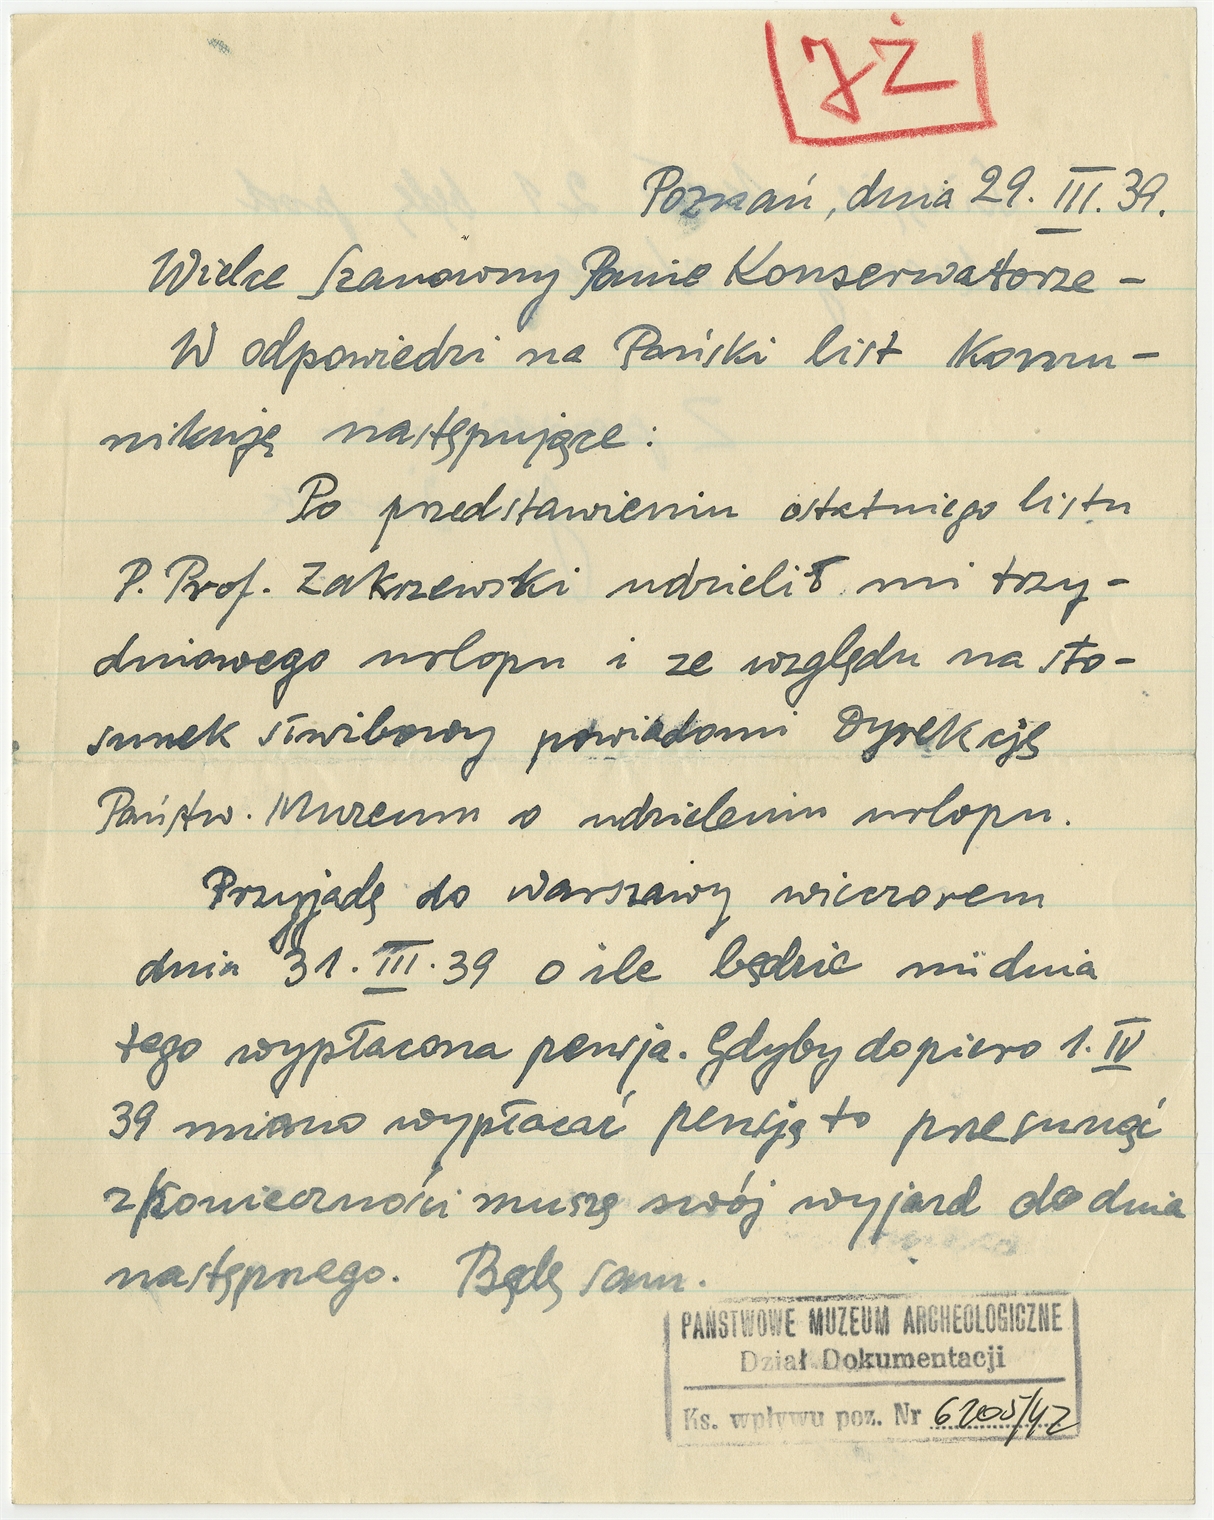 JŻ
Poznań, dnia 29. III. 39.
Wielce Szanowny Panie Konserwatorze –
W odpowiedzi na Pański list Komu-
nikuję następujące :
Po przedstawieniu ostatniego listu
P. Prof. Zakrzewski udzielił mi trzy-
dniowego urlopu i ze względu na sto-
sunek służbowy powiadomi Dyrekcję
Państw. Muzeum o udzieleniu urlopu.
Przyjadę do Warszawy wieczorem
dnia 31. III. 39 o ile będzie mi dnia
tego wypłacona pensja. Gdyby dopiero 1. IV
39 miano wypłacać pensję to przesunąć
z konieczności muszę swój wyjazd do dnia
następnego. Będę sam.
PAŃSTWOWE MUZEUM ARCHEOLOGICZNE
Dział Dokumentacji
Ks. wpływu poz. Nr 6205/42